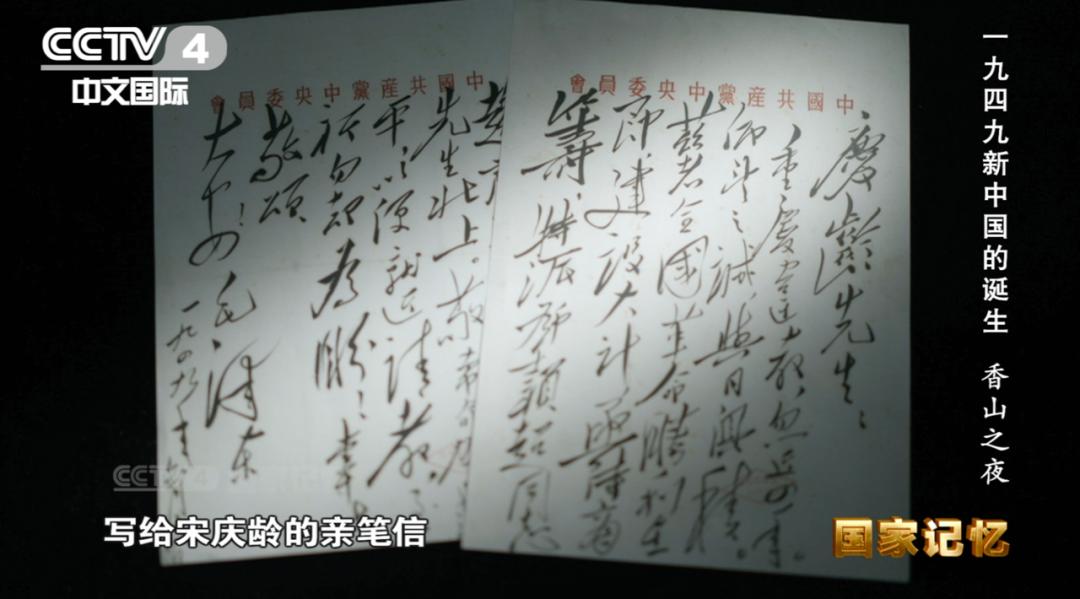 CCTV 4
中文国际
一九四九新中国的诞生 香山之夜
中國共産黨中央委員會
慶齡先生：
重慶違教，忽近四年。
仰望之誠，與日俱積。
茲者全國革命勝利在
即，建設大計，亟待商
籌，特派鄧穎超同志
中國共産黨中央委員會
先生北上。敬希命
平，以便就近請教，
祈勿却為盼！專此
敬頌
大安！毛澤東
一九四九年
CCTV 4
写给宋庆龄的亲笔信
国家记忆